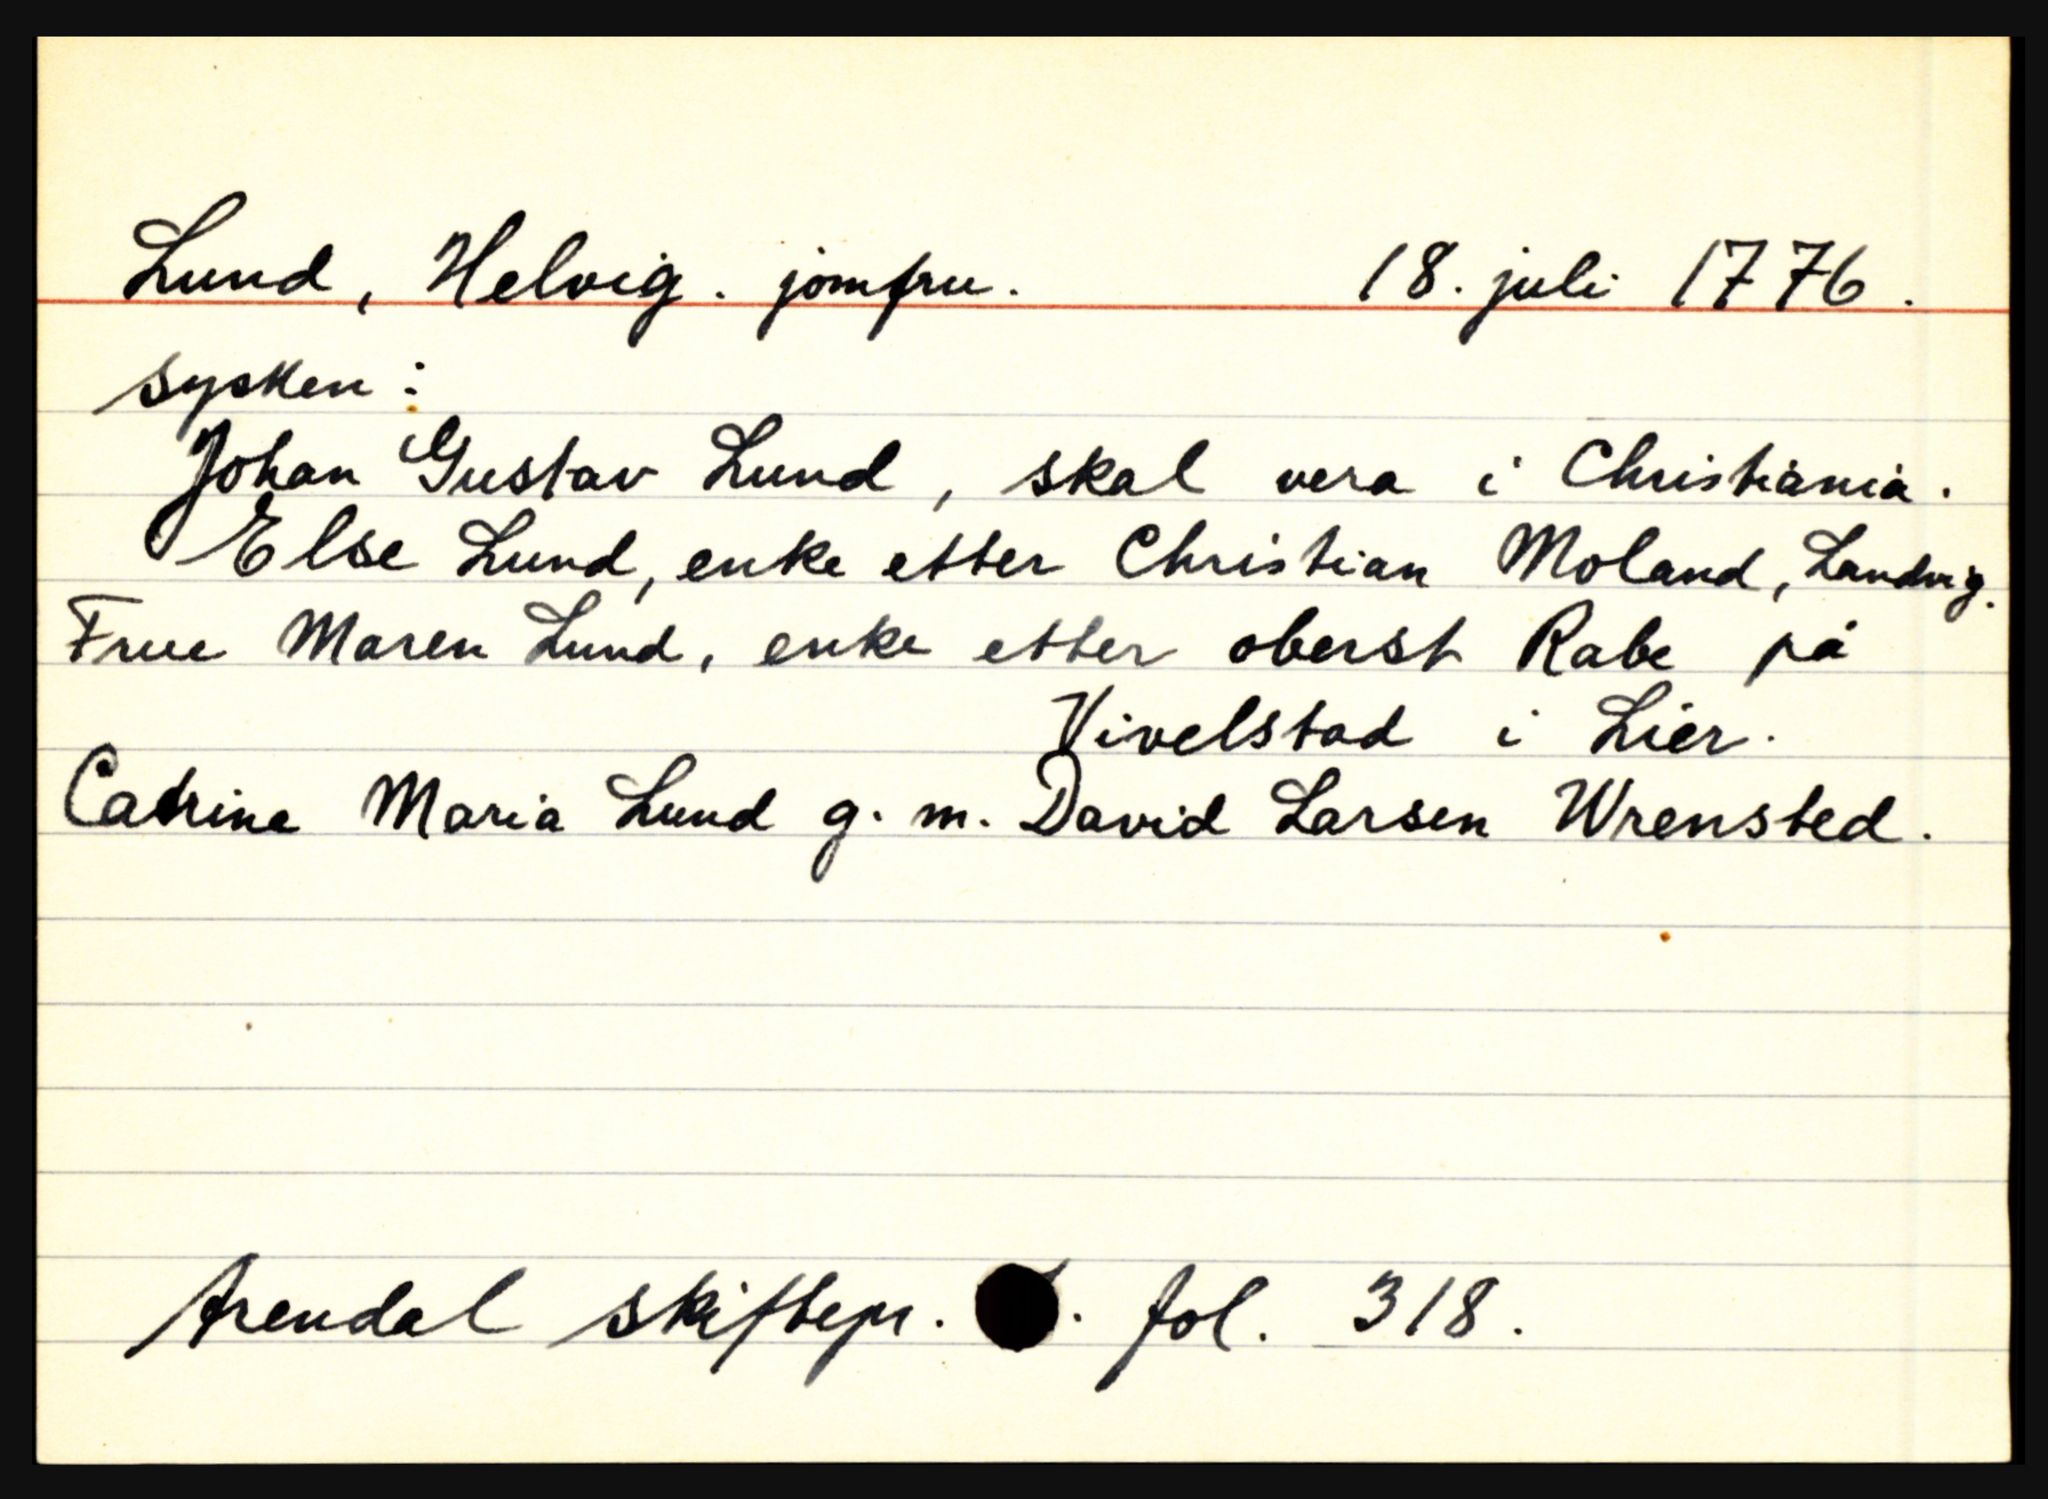 Lund, Helvig. jomfru. 18. juli 1776.
sysken:
Johan Gustav Lund, skal vera i Christiania.
Else Lund, enke etter Christian Moland, Landvig.
Frue Maren Lund, enke etter oberst Rabe på
Vivelstad i Lier.
Catrine Maria Lund g. m. David Larsen Wrensted.
Arendal skiftepr. . fol. 318.